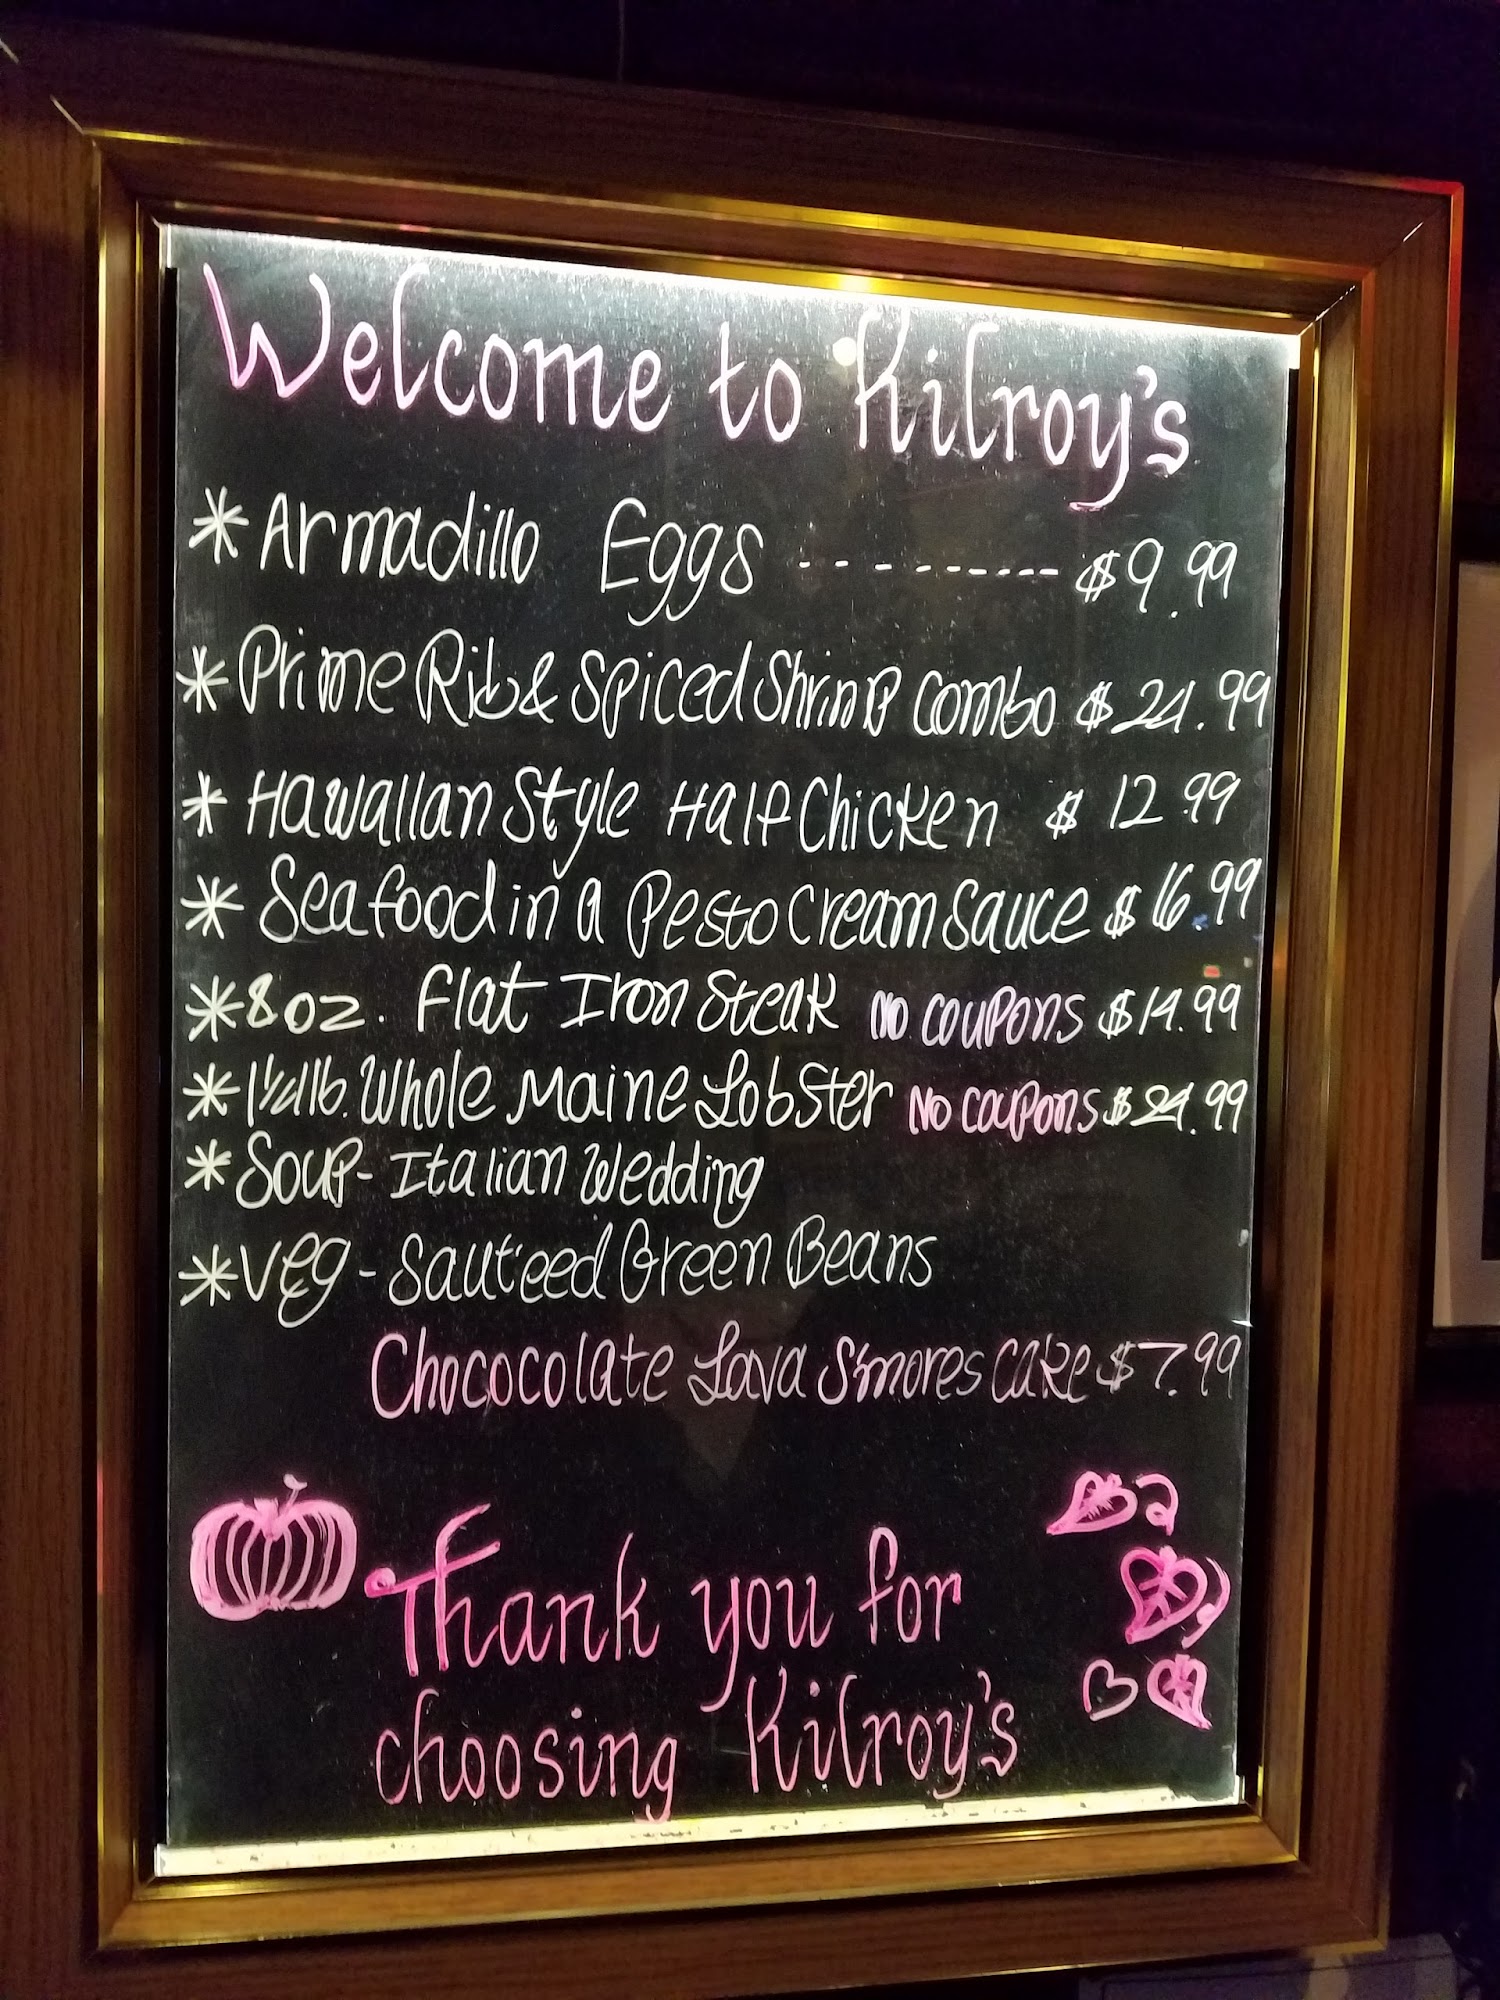 Welcome to Kilroy's
* Armadillo Eggs ---------- $9.99
* Prime Rib & Spiced Shrimp Combo $24.99
* Hawaiian Style Half Chicken $12.99
* Seafood in a Pesto Cream Sauce $16.99
* 8oz. Flat Iron Steak No Coupons $14.99
* 1¼ lb. Whole Maine Lobster No Coupons $24.99
* Soup - Italian Wedding
* Veg - Sauteed Green Beans
Chococolate Lava S'mores Cake $7.99
Thank you for
choosing Kilroy's